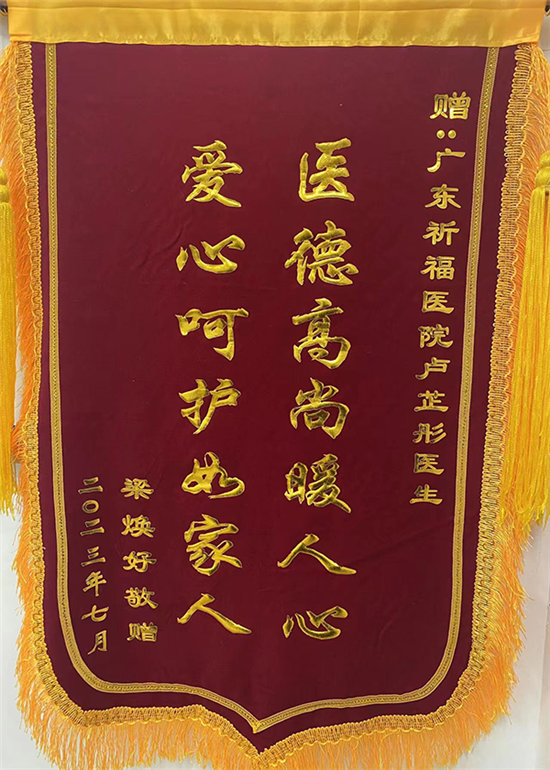 赠:广东祈福医院卢芷彤医生
医德高尚暖人心
爱心呵护如家人
梁焕好敬赠
二〇二三年七月